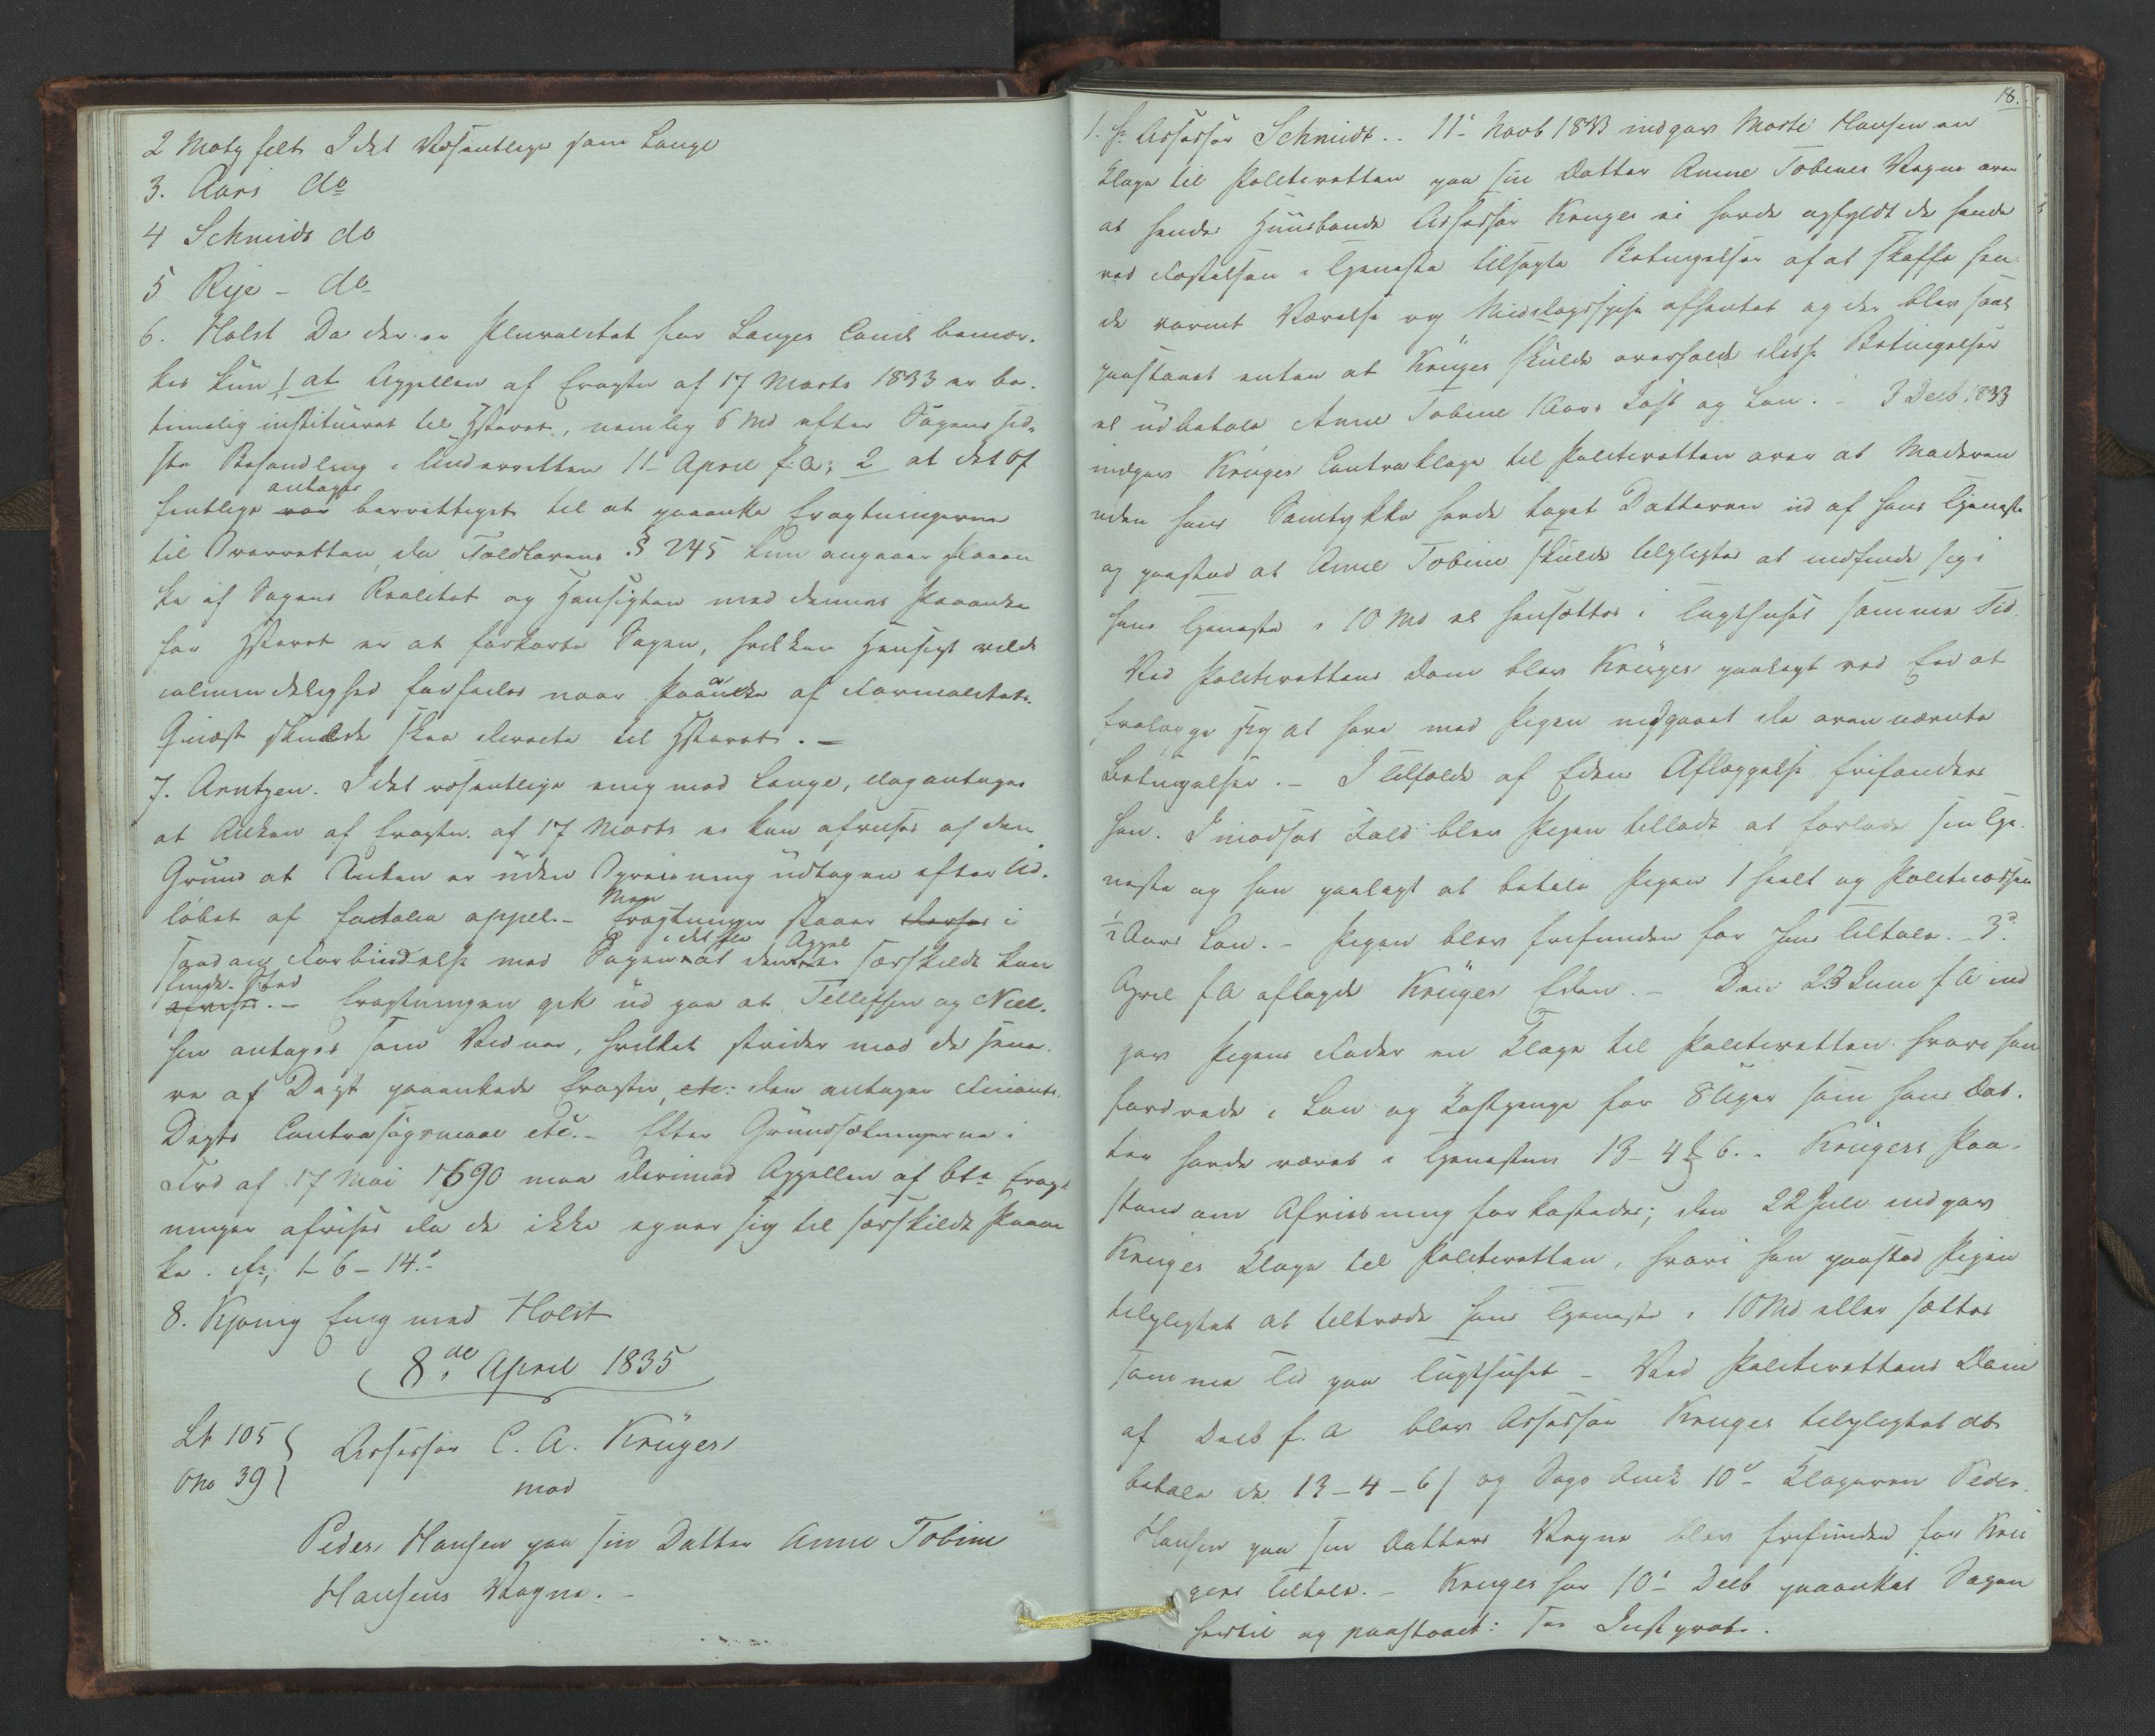 2 Motzfelt I det Væsentlige som Lange
3. Aars do
4 Schmidt do
5 Rije - do
6. Holst Da der er Pluralitet for Langes Concl bemær-
kes kun 1 at Appellen af Eragtn af 17 Marts 1833 er be-
timelig institueret til Hsteret, nemlig 6 Md efter Sagens sid-
ste Behandling i Underretten 11 April f: A; 2 at det of
fentlige var antages berettiget til at paaanke Eragtningerne
til Overretten, da Toldlovens § 245 kun angaaer Paaan
ke af Sagens Realitet og Hensigten med dennes Paaanke
for Hsteret er at forkorte Sagen, hvilken Hensigt vilde
almindelighed forfeiles naar Paaanke af Formalitets-
Qvæst skulde skee directe til Hsteret. -
7. Arntzen. I det væsentlige enig med Lange, dog antages
at Anken af Eragtn. af 17 Marts ei kan afvises af den
Grund at Anken er uden Opreisning udtagen efter Ud-
løbet af fatalia appel. - Men Eragtningen staaer derfor i
saadan Forbindelse med Sagen at i det hele dens Appel særskildt kan
finde Sted afvises. - Eragtningen gik ud paa at Tellefsen og Niel-
sen antages som Vidner, hvilket strider mod de sene-
re af Dept paaankede Eragtn, etc: den antager Finants
Depts Contrasøgsmaal etc. - Efter Grundsætningerne i
Frd af 17 Mai 1690 maa derimod Appellen af bte Eragt
ninger afvises da de ikke egner sig til særskildt Paaan
ke. cfr, 1-6-14. -
8. Kjønig Enig med Holst
8de April 1835
Lt 105
No 39
Assessor C. A. Krüger
mod
Peder Hansen paa sin Datter Anne Tobine
Hansens Vegne. -
18.
1. Hr Assessor Schmidt.. 11te Novb 1833 indgav Hansen en
Klage til Politieretten paa sin Datter Anne Tobines Vegne over
at hendes Huusbonde Assessor Krüger ei havde opfyldt de hende
ved Fæstelsen i Tjeneste tilsagte Betingelser af at skaffe hen
de varmt Værelse og Middagsspise afhentet og der blev saa
paastaaet enten at Krüger skulde overholde disse Betingelser
el udbetale Anne Tobine Kost og Løn. - 3 Decb. 1833
indgav Krüger Contraklage til Politieretten over at Moderen
uden hans Samtykke havde taget Datteren ud af hans Tjeneste
og paastod at Anne Tobine skulde tilpligtes at indfinde sig i
hans Tjeneste i 10 Md el hensættes i Tugthuset samme Tid.
Ved Politierettens Dom blev Krüger paalagt ved Eed at
fralægge sig at have med Pigen indgaaet de ovennævnte
Betingelser. - I Tilfælde af Edens Aflæggelse frifandtes
han. I modsat Fald blev Pigen tilladt at forlade sin Tje-
neste og han paalagt at betale Pigen 1 heelt og
1/2 Aars Løn. - Pigen blev frifunden for hans Tiltale. - 3d
April f A aflagde Krüger Eden. - Den 23 Juni f A ind
gav Pigens Fader en Klage til Politieretten hvori han
fordrede i Løn og Kostpenge for 8 Uger som hans Dat-
ter havde været i Tjenesten 13-4 ß 6. - Krügers Paa-
stand om Afviisning forkastedes; den 22 Juli indgav
Krüger Klage til Politieretten, hvori han paastod Pigen
tilpligtet at tiltræde hans Tjeneste i 10 Md eller sættes
samme Tid paa Tugthuset - Ved Politierettens Dom
af Decb f. A blev Assessor Krüger tilpligtet at
betale de 13-4-6 / og Sags Omk 10d - Klageren Peder
Hansen paa sin Datters Vegne blev frifunden for Krü
gers Tiltale. - Krüger har 10de Decb paaanket Sagen
hertil og paastaaet: see Inst prot.